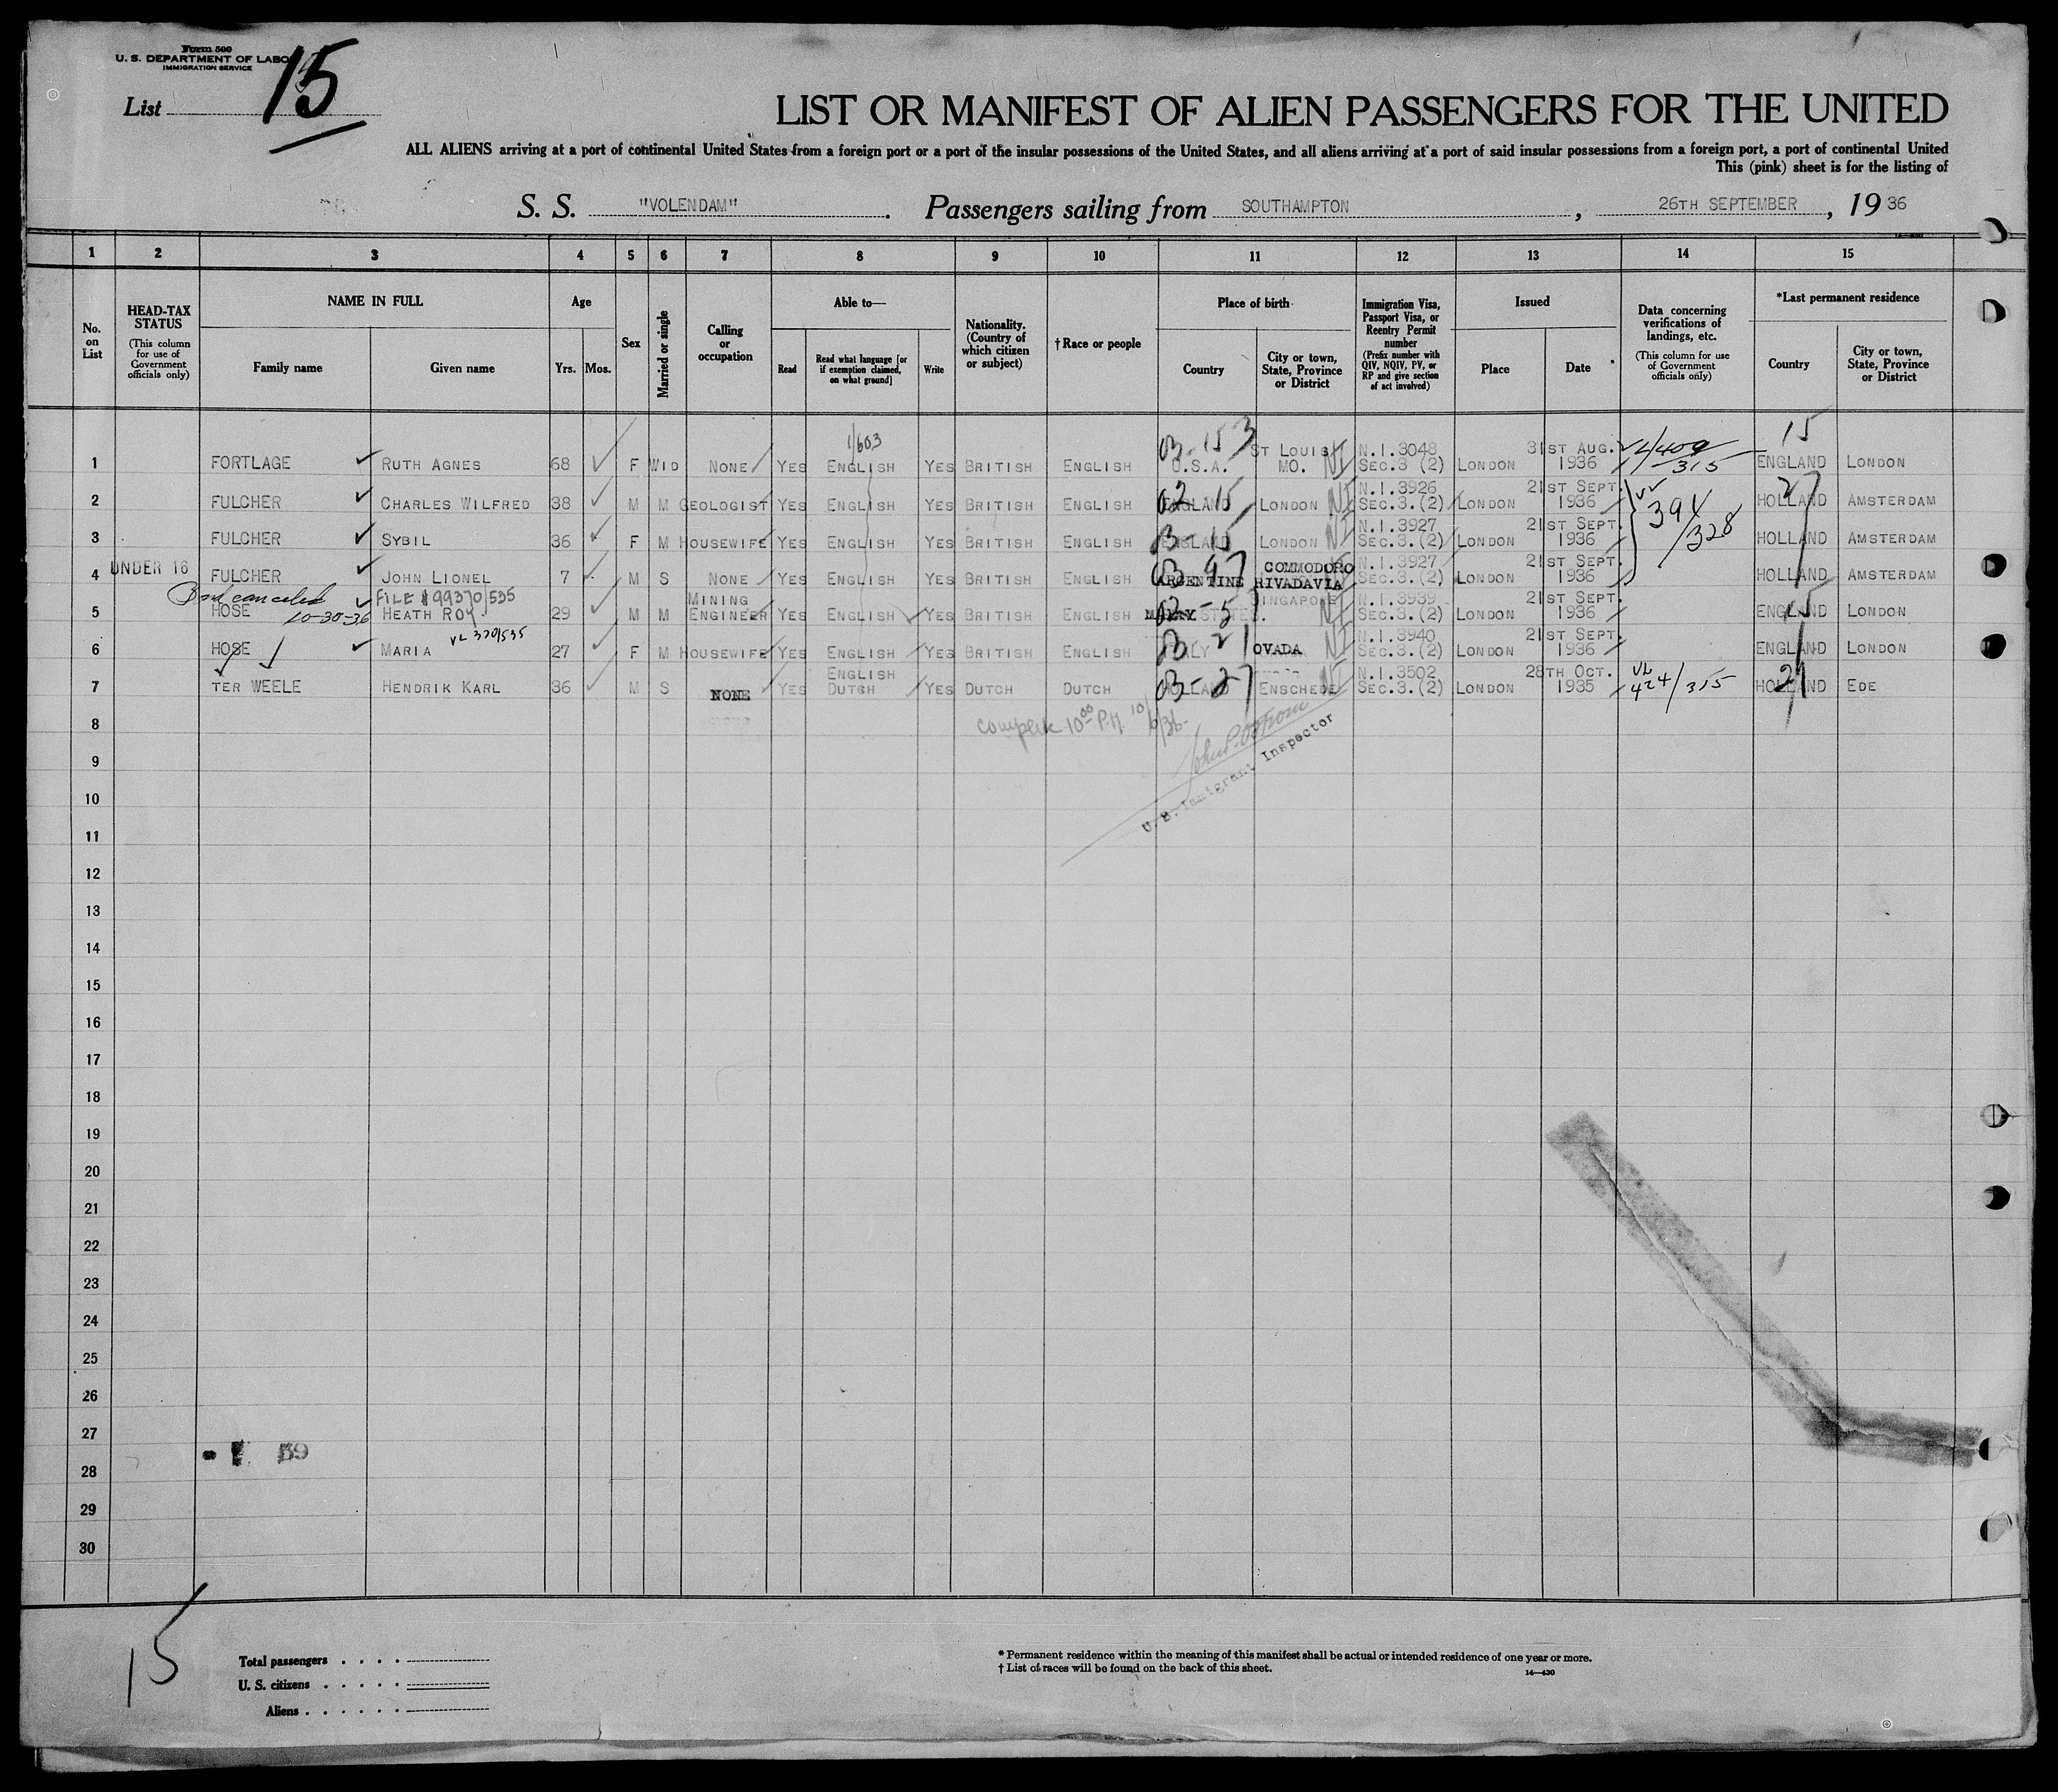 Form 500
U. S. DEPARTMENT OF LABO
IMMIGRATION SERVICE
List 15
LIST OR MANIFEST OF ALIEN PASSENGERS FOR THE UNITED
ALL ALIENS arriving at a port of continental United States from a foreign port or a port of the insular possessions of the United States, and all aliens arriving at a port of said insular possessions from a foreign port, a port of continental United
This (pink) sheet is for the listing of
S. S. "VOLENDAM". Passengers sailing from SOUTHAMPTON, 26TH SEPTEMBER, 1936
1 2 3 4 5 6 7 8 9 10 11 12 13 14 15
No. on List
HEAD-TAX STATUS (This column for use of Government officials only)
NAME IN FULL
Family name Given name
Age
Yrs. Mos.
Sex
Married or single
Calling or occupation
Able to—
Read Read what language [or if exemption claimed, on what ground] Write
Nationality. (Country of which citizen or subject)
†Race or people
Place of birth
Country City or town, State, Province or District
Immigration Visa, Passport Visa, or Reentry Permit number (Prefix number with QIV, NQIV, PV, or RP and give section of act involved)
Issued
Place Date
Data concerning verifications of landings, etc. (This column for use of Government officials only)
*Last permanent residence
Country City or town, State, Province or District
1/603
1 FORTLAGE RUTH AGNES 68 F WID NONE YES ENGLISH YES BRITISH ENGLISH 03-15 3 U.S.A. ST LOUIS MO. NI N.I.3048 SEC.3 (2) LONDON 31ST AUG. 1936 315 15 ENGLAND LONDON
2 FULCHER CHARLES WILFRED 38 M M GEOLOGIST YES ENGLISH YES BRITISH ENGLISH 02 15 ENGLAND LONDON NI N.I.3926 SEC.3.(2) LONDON 21ST SEPT. 1936 394/328 27 HOLLAND AMSTERDAM
3 FULCHER SYBIL 36 F M HOUSEWIFE YES ENGLISH YES BRITISH ENGLISH 03-15 ENGLAND LONDON NI N.I.3927 SEC.3.(2) LONDON 21ST SEPT. 1936 HOLLAND AMSTERDAM
4 UNDER 16 FULCHER JOHN LIONEL 7 M S NONE YES ENGLISH YES BRITISH ENGLISH ARGENTINE COMMODORO RIVADAVIA N.I.3927 SEC.3.(2) LONDON 21ST SEPT. 1936 HOLLAND AMSTERDAM
Bond canceled 10-30-36 FILE # 99370/535
5 HOSE HEATH ROY 29 M M MINING ENGINEER YES ENGLISH YES BRITISH ENGLISH 02-5 MALAY STATES. SINGAPORE NI N.I.3939 SEC.3.(2) LONDON 21ST SEPT. 1936 15 ENGLAND LONDON
6 HOSE MARIA VL 320/535 27 F M HOUSEWIFE YES ENGLISH YES BRITISH ENGLISH 03-21 ITALY OVADA NI N.I.3940 SEC.3.(2) LONDON 21ST SEPT. 1936 ENGLAND LONDON
7 TER WEELE HENDRIK KARL 36 M S NONE YES ENGLISH DUTCH YES DUTCH DUTCH 03-27 HOLLAND ENSCHEDE NI N.I.3502 SEC.3.(2) LONDON 28TH OCT. 1935 VL 424/315 27 HOLLAND EDE
8
Complete 10 00 P.M. 10/6/36
U. S. Immigrant Inspector
9
10
11
12
13
14
15
16
17
18
19
20
21
22
23
24
25
26
27
59
28
29
30
15
Total passengers
U. S. citizens
Aliens
* Permanent residence within the meaning of this manifest shall be actual or intended residence of one year or more.
† List of races will be found on the back of this sheet.
14—430